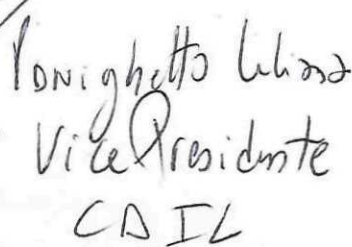 Tonighetto Liliana
Vice Presidente
CDIL